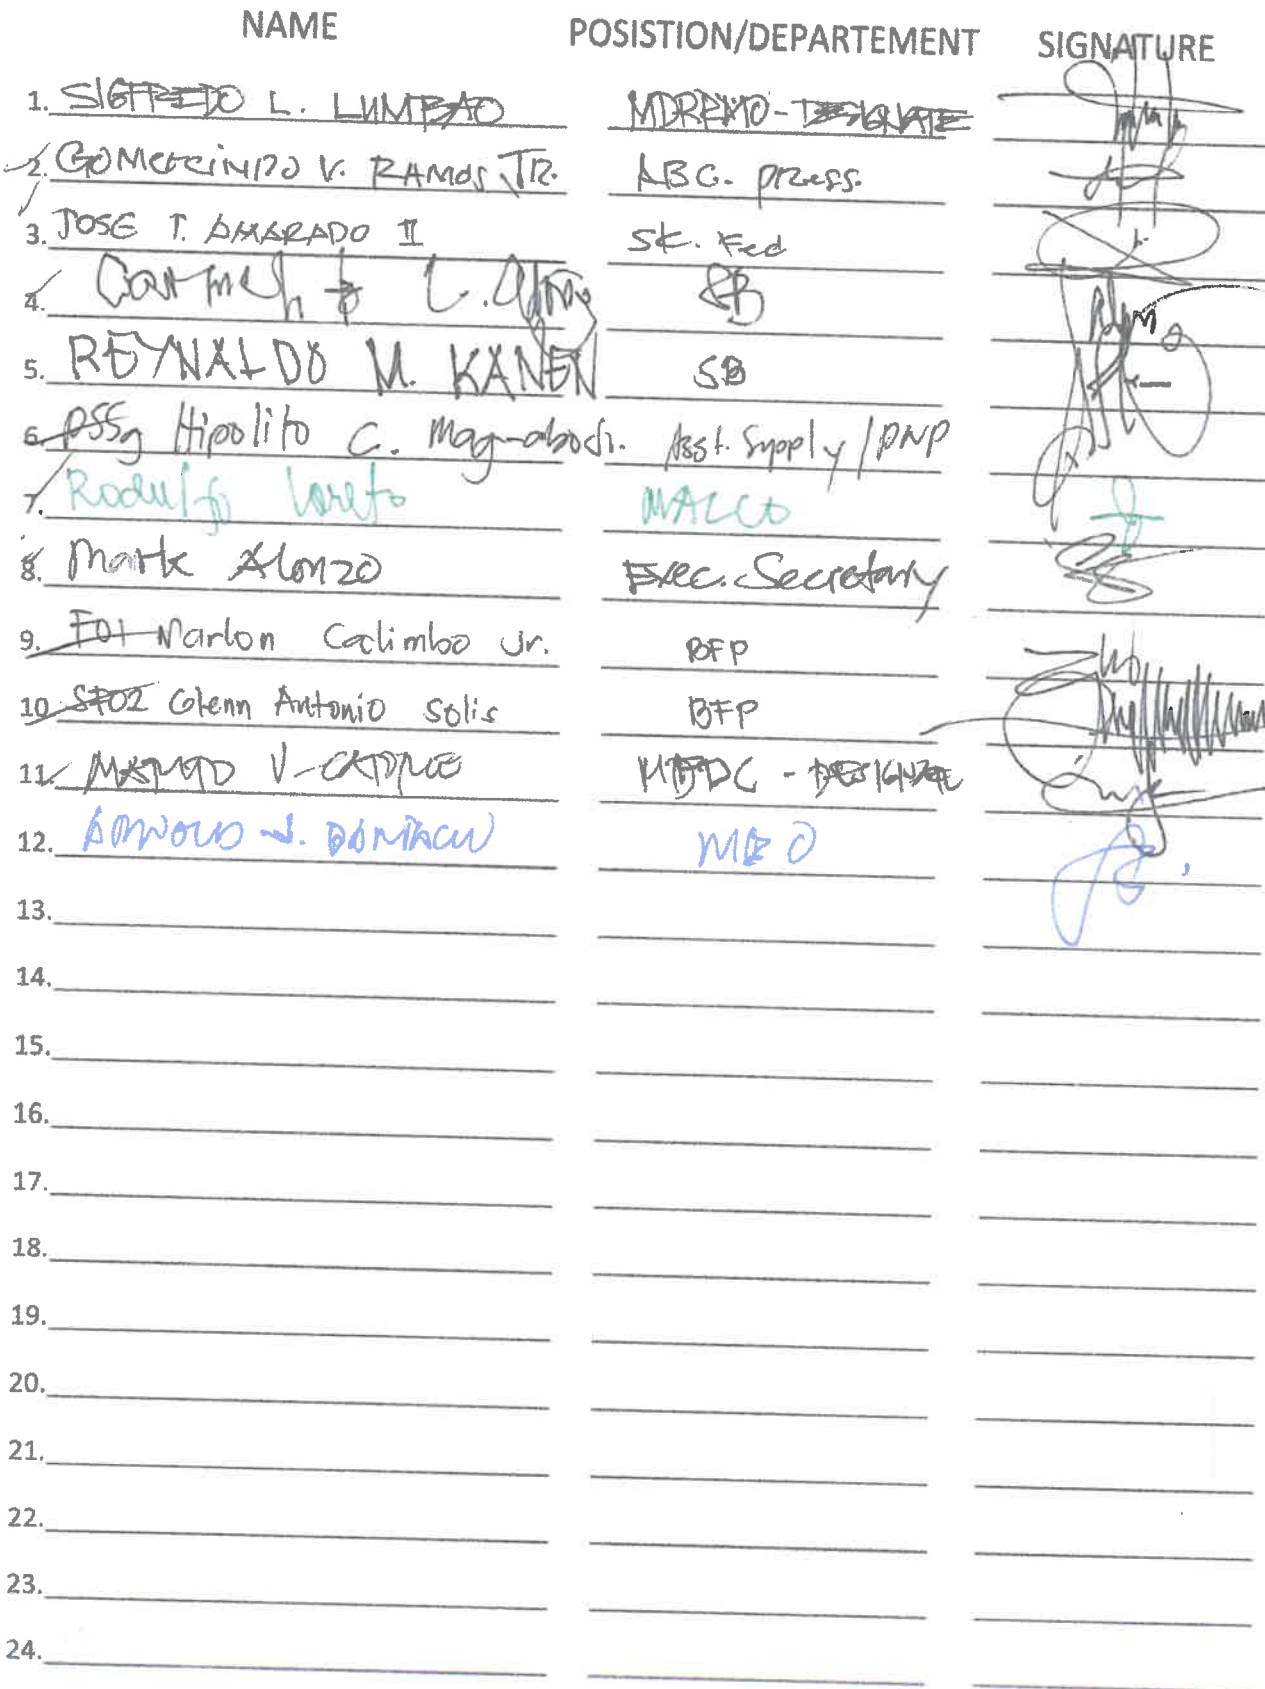 NAME POSISTION/DEPARTEMENT SIGNATURE
1. SIGFREDO L. LUMBAO MDRRMO-DESIGNATE
2. GOMERCINDO V. RAMOS JR. ABC. press.
3. JOSE T. AMARADO II SK. Fed
4. L. SB
5. REYNALDO M. KANEN SB
6. PSSg Hipolito C. Asst. Supply/PNP
7. Rodulfo Loreto MALCO
8. Mark Alonzo Exec. Secretary
9. FO1 Marlon Calimbo Jr. BFP
10. SFO2 Glenn Antonio Solis BFP
11. V. - DESIGNATE
12. J. MEO
13.
14.
15.
16.
17.
18.
19.
20.
21.
22.
23.
24.